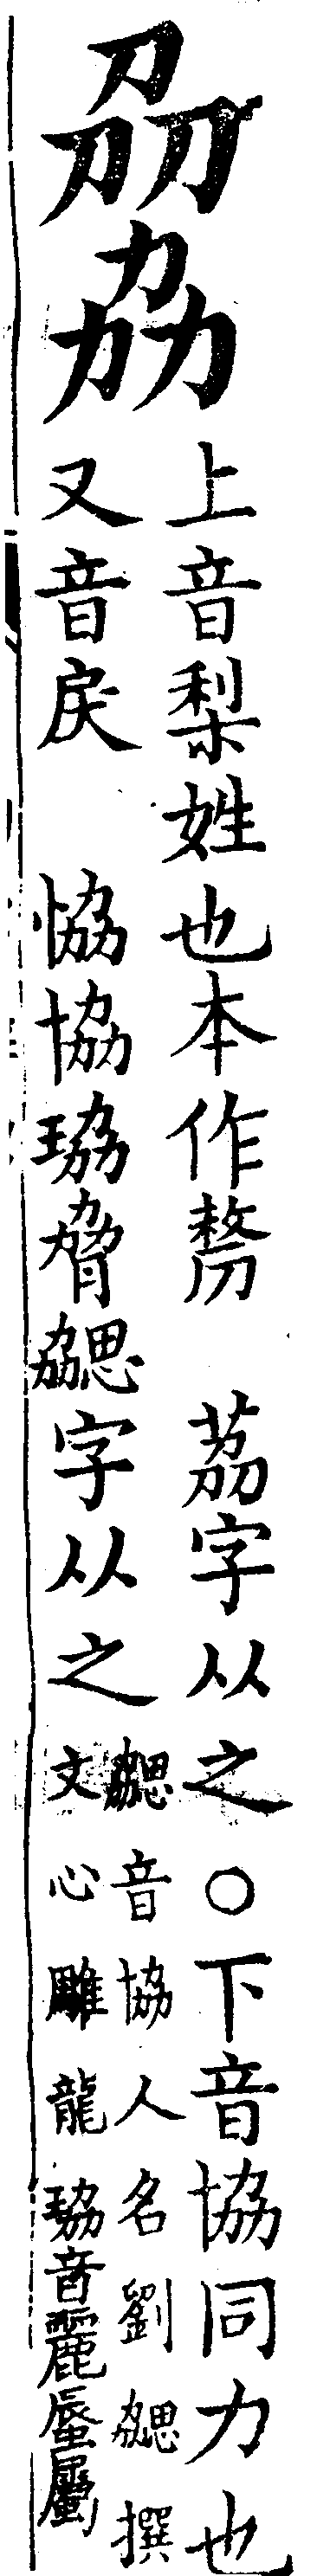 刕劦
上音梨姓也本作𠞽 茘字从之○下音協同力也
又音戾 恊協珕脅勰字从之
勰音協人名劉勰撰
文心雕龍 珕音麗蜃屬